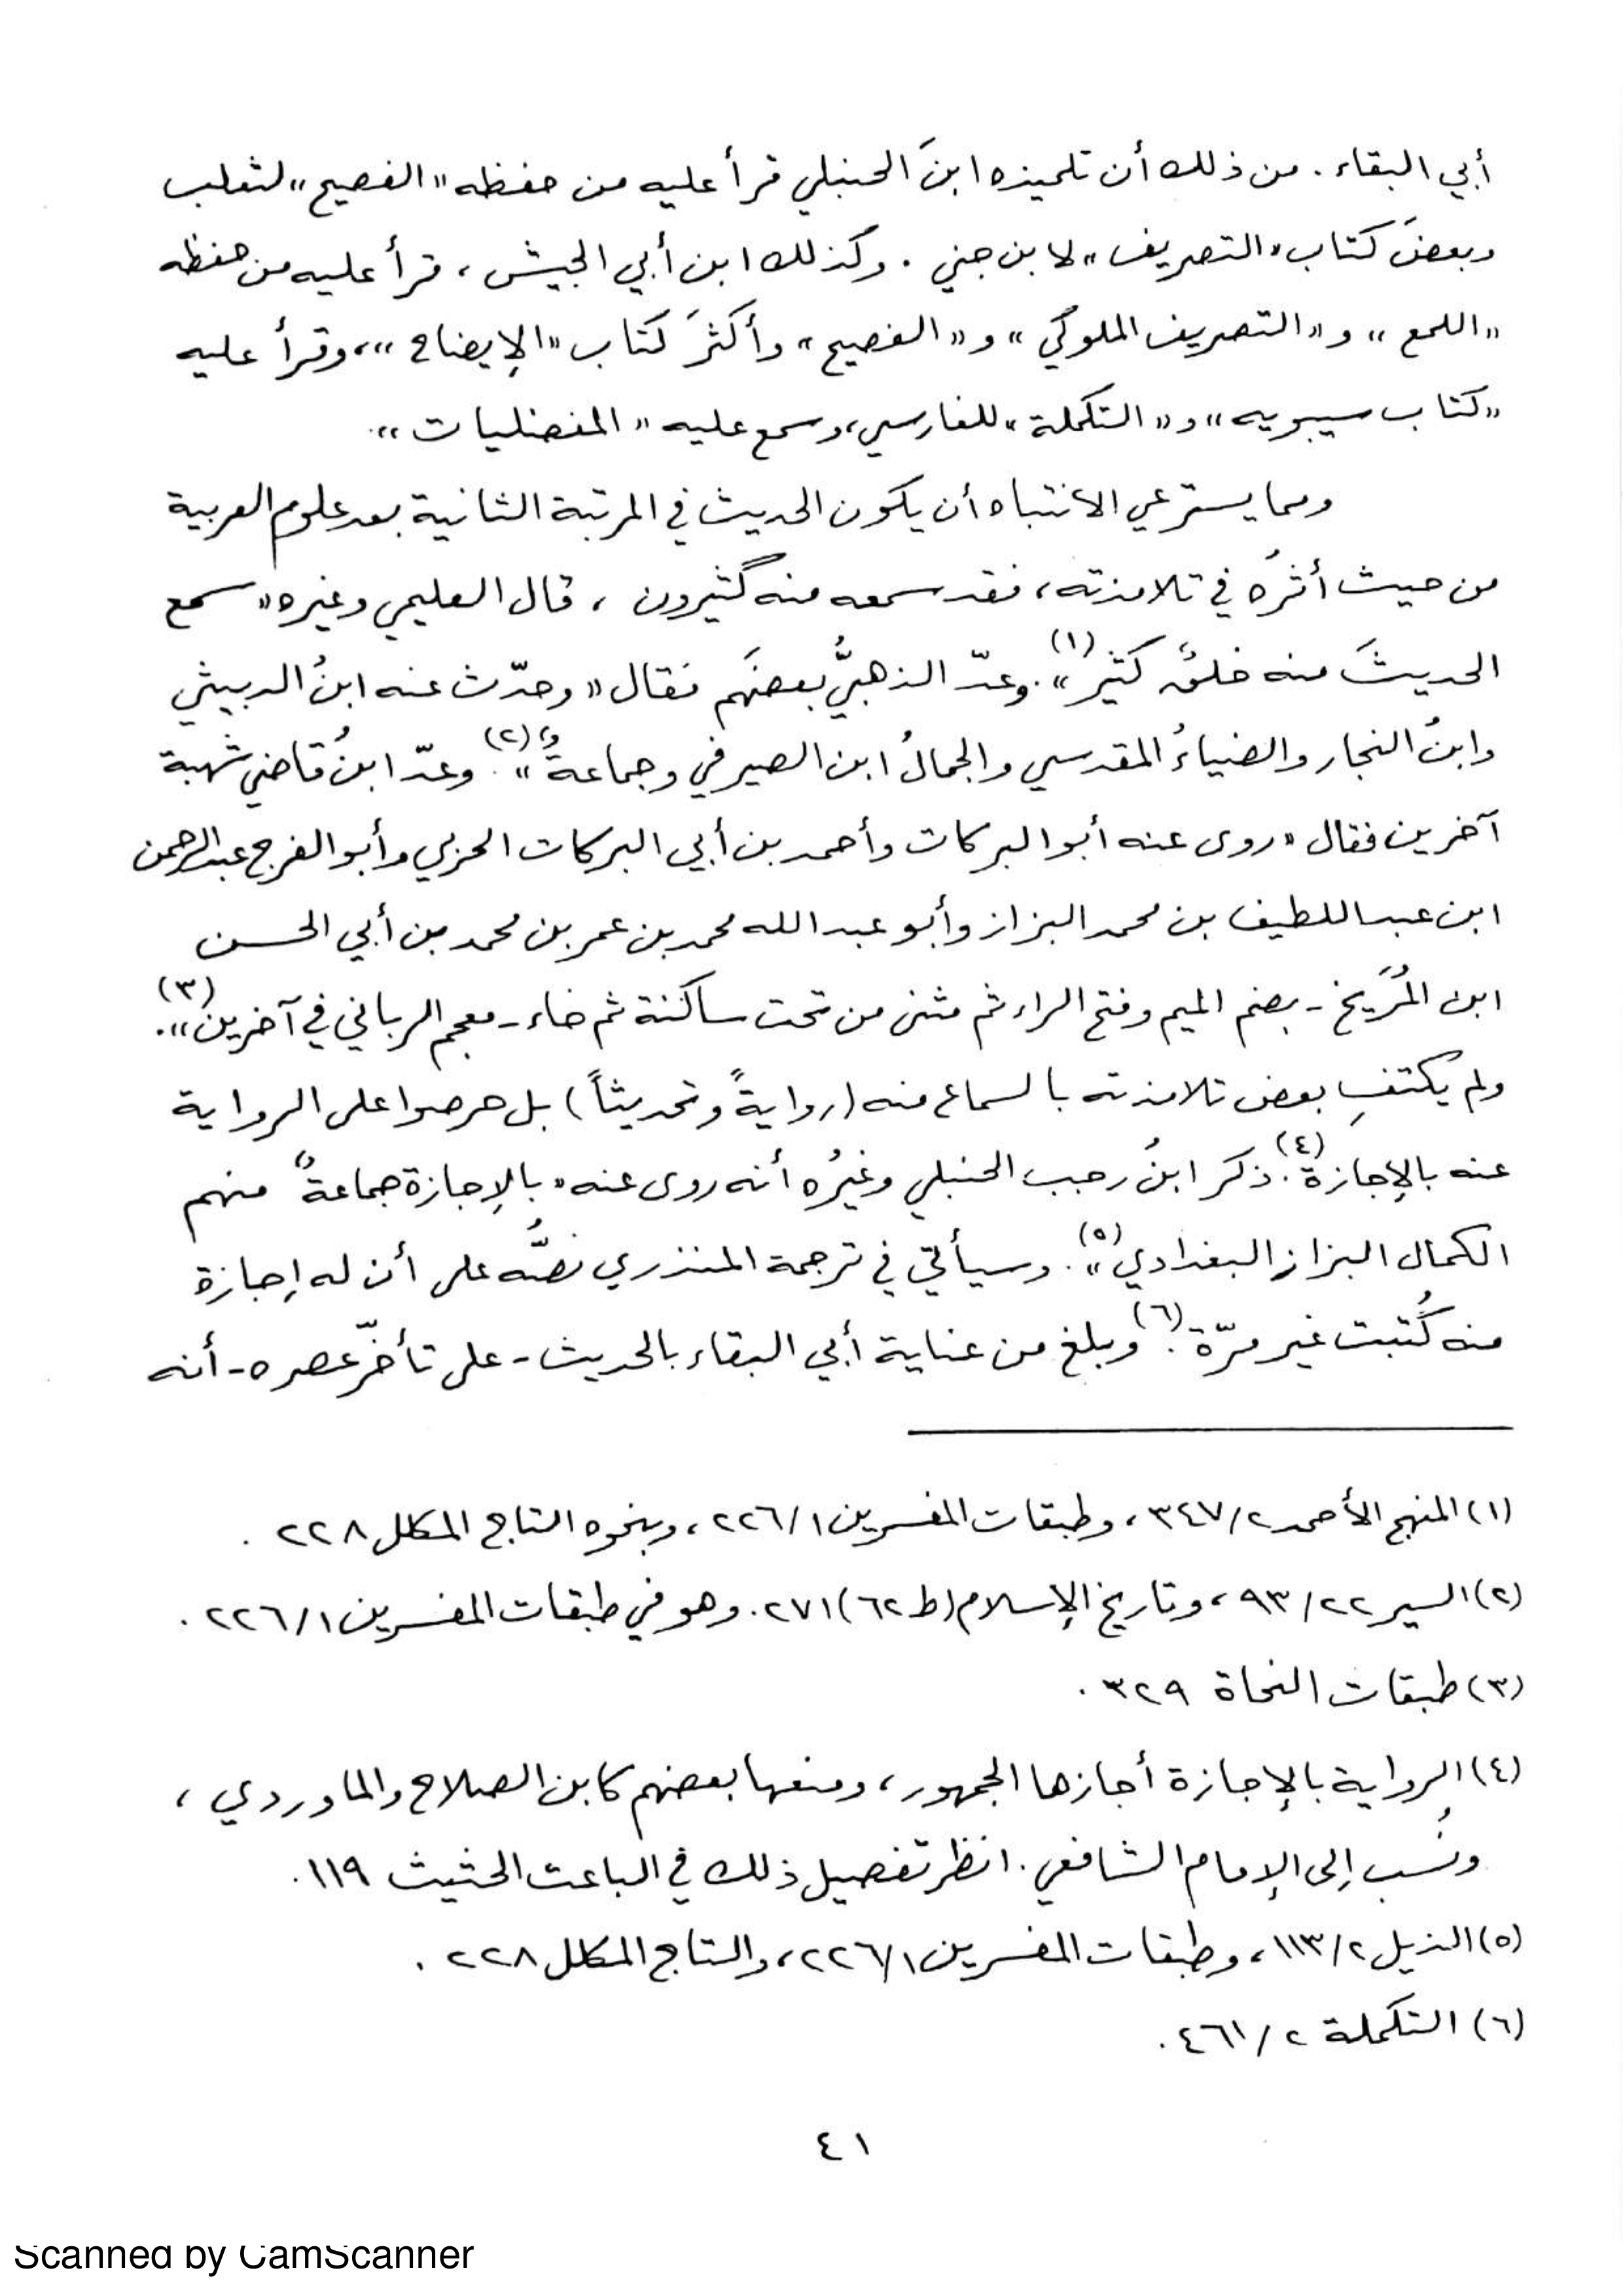 أبي البقاء. من ذلك أن تلميذه ابنَ الحنبلي قرأ عليه من حفظه «الفصيح» لثعلب
وبعضَ كتاب «التصريف» لابن جني. وكذلك ابن أبي الجيش، قرأ عليه من حفظه
«اللمع» و«التصريف الملوكي» و«الفصيح» وأكثرَ كتاب «الإيضاح»، وقرأ عليه
«كتاب سيبويه» و«التكملة» للفارسي، وسمع عليه «المفضليات».
ومما يسترعي الانتباه أن يكون الحديث في المرتبة الثانية بعد علوم العربية
من حيث أثرُه في تلامذته، فقد سمعه منه كثيرون، قال العليمي وغيره «سمع
الحديثَ منه خلقٌ كثير»(١). وعدّ الذهبيُّ بعضَهم فقال «وحدّث عنه ابنُ الدبيثي
وابنُ النجار والضياءُ المقدسي والجمالُ ابن الصيرفي وجماعةٌ»(٢). وعدّ ابنُ قاضي شهبة
آخرين فقال «روى عنه أبو البركات وأحمد بن أبي البركات الحربي وأبو الفرج عبد الرحمن
ابن عبد اللطيف بن محمد البزاز وأبو عبد الله محمد بن عمر بن محمد بن أبي الحسن
ابن المُرَيخ - بضم الميم وفتح الراء ثم مثنى من تحت ساكنة ثم خاء - معجم الرباني في آخرين»(٣).
ولم يكتفِ بعض تلامذته بالسماع منه (روايةً وتحديثاً) بل حرصوا على الرواية
عنه بالإجازة(٤). ذكر ابنُ رجب الحنبلي وغيرُه أنه روى عنه «بالإجازة جماعةٌ منهم
الكمال البزاز البغدادي»(٥). وسيأتي في ترجمة المنذري نصُّه على أن له إجازة
منه كُتبت غير مرّة(٦). وبلغ من عناية أبي البقاء بالحديث - على تأخّر عصره - أنه
(١) المنهج الأحمد ٢/٣٤٧، وطبقات المفسرين ١/٢٢٦، وبنحوه التاج المكلل ٢٢٨.
(٢) السير ٢٢/٩٣، وتاريخ الإسلام (ط ٦٢) ٢٧١. وهو في طبقات المفسرين ١/٢٢٦.
(٣) طبقات النحاة ٣٢٩.
(٤) الرواية بالإجازة أجازها الجمهور، ومنعها بعضهم كابن الصلاح والماوردي،
ونُسب إلى الإمام الشافعي. انظر تفصيل ذلك في الباعث الحثيث ١١٩.
(٥) الذيل ٢/١١٣، وطبقات المفسرين ١/٢٢٦، والتاج المكلل ٢٢٨.
(٦) التكملة ٢/٤٦١.
٤١
Scanned by CamScanner